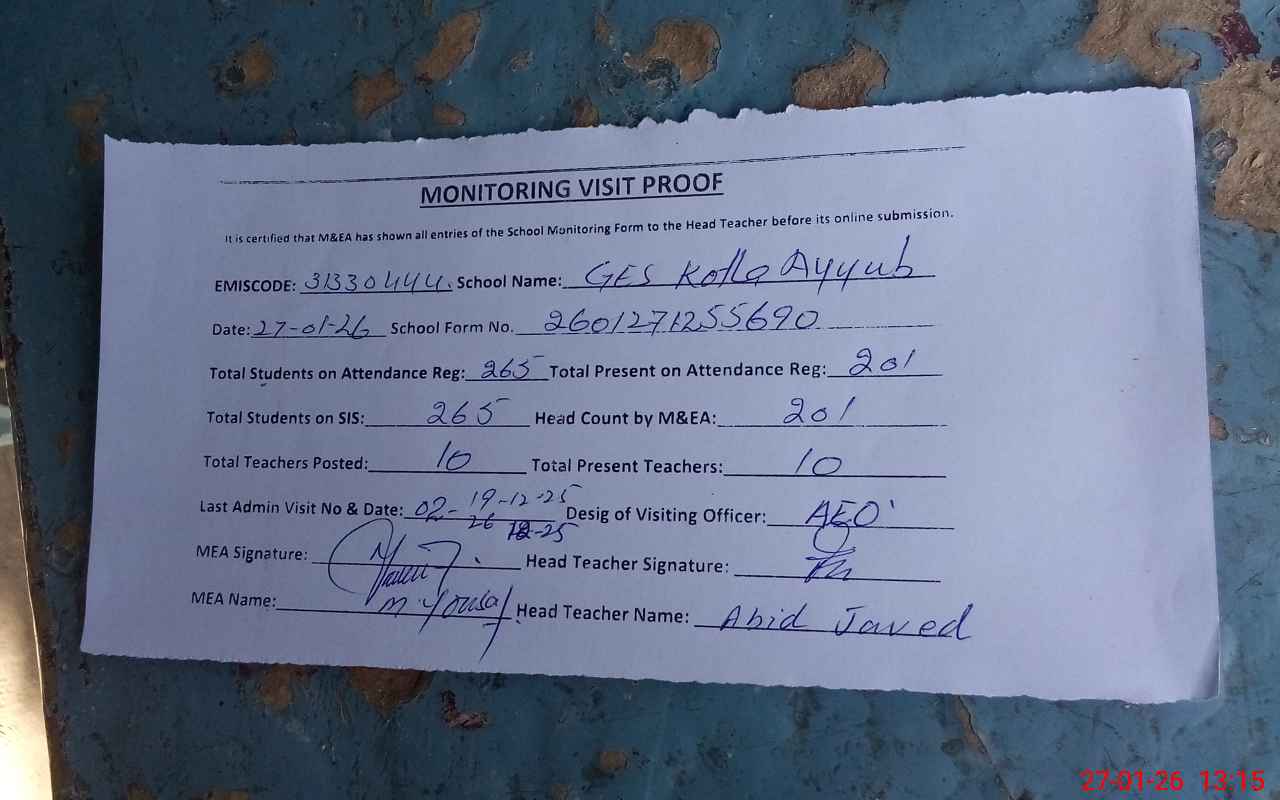 MONITORING VISIT PROOF
It is certified that M&EA has shown all entries of the School Monitoring Form to the Head Teacher before its online submission.
EMISCODE: 31330444. School Name: GES Kotla Ayyub
Date: 27-01-26 School Form No. 2601271255690
Total Students on Attendance Reg: 265 Total Present on Attendance Reg: 201
Total Students on SIS: 265 Head Count by M&EA: 201
Total Teachers Posted: 10 Total Present Teachers: 10
Last Admin Visit No & Date: 02- 19-12-25 Desig of Visiting Officer: AEO
26 12-25
MEA Signature: Head Teacher Signature:
MEA Name: M. Yousaf Head Teacher Name: Abid Javed
27-01-26 13:15